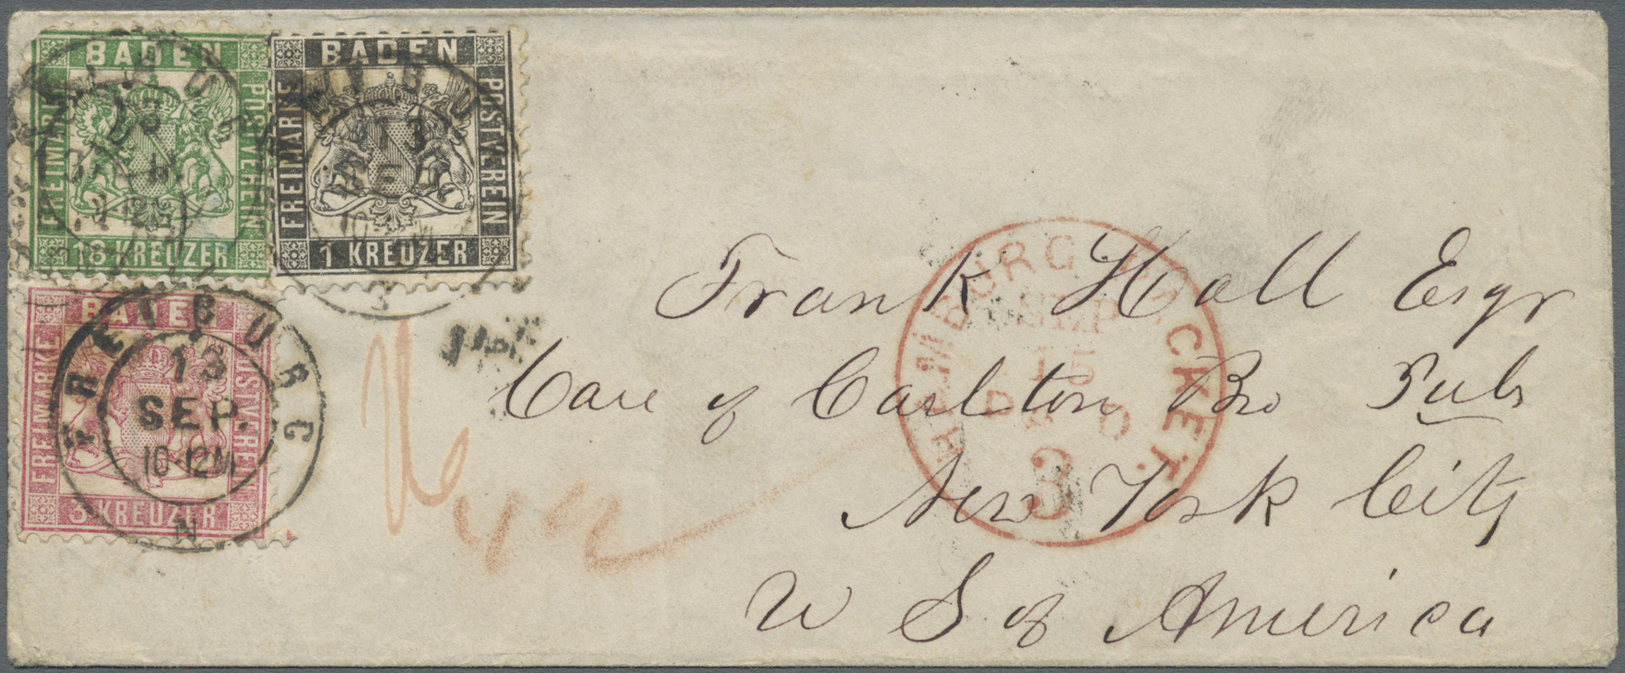 BADEN
FREIMARKE
POSTVEREIN
18 KREUZER
BADEN
FREIMARKE
POSTVEREIN
1 KREUZER
BADEN
FREIMARKE
POSTVEREIN
3 KREUZER
FREIBURG
13
SEP.
10-12M
N
HAMBURG PACKET.
SEP
15
PAID
3
Frank Hall Esqr
Care of Carlton Bro Pubs
New York City
U S of America